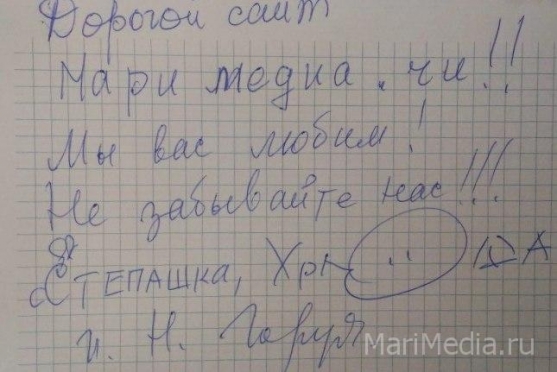 Дорогой сайт
Мари медиа . чи !!
Мы вас любим !
Не забывайте нас !!!
Степашка, Хрю ША
и. Н. Гаруля
MariMedia.ru